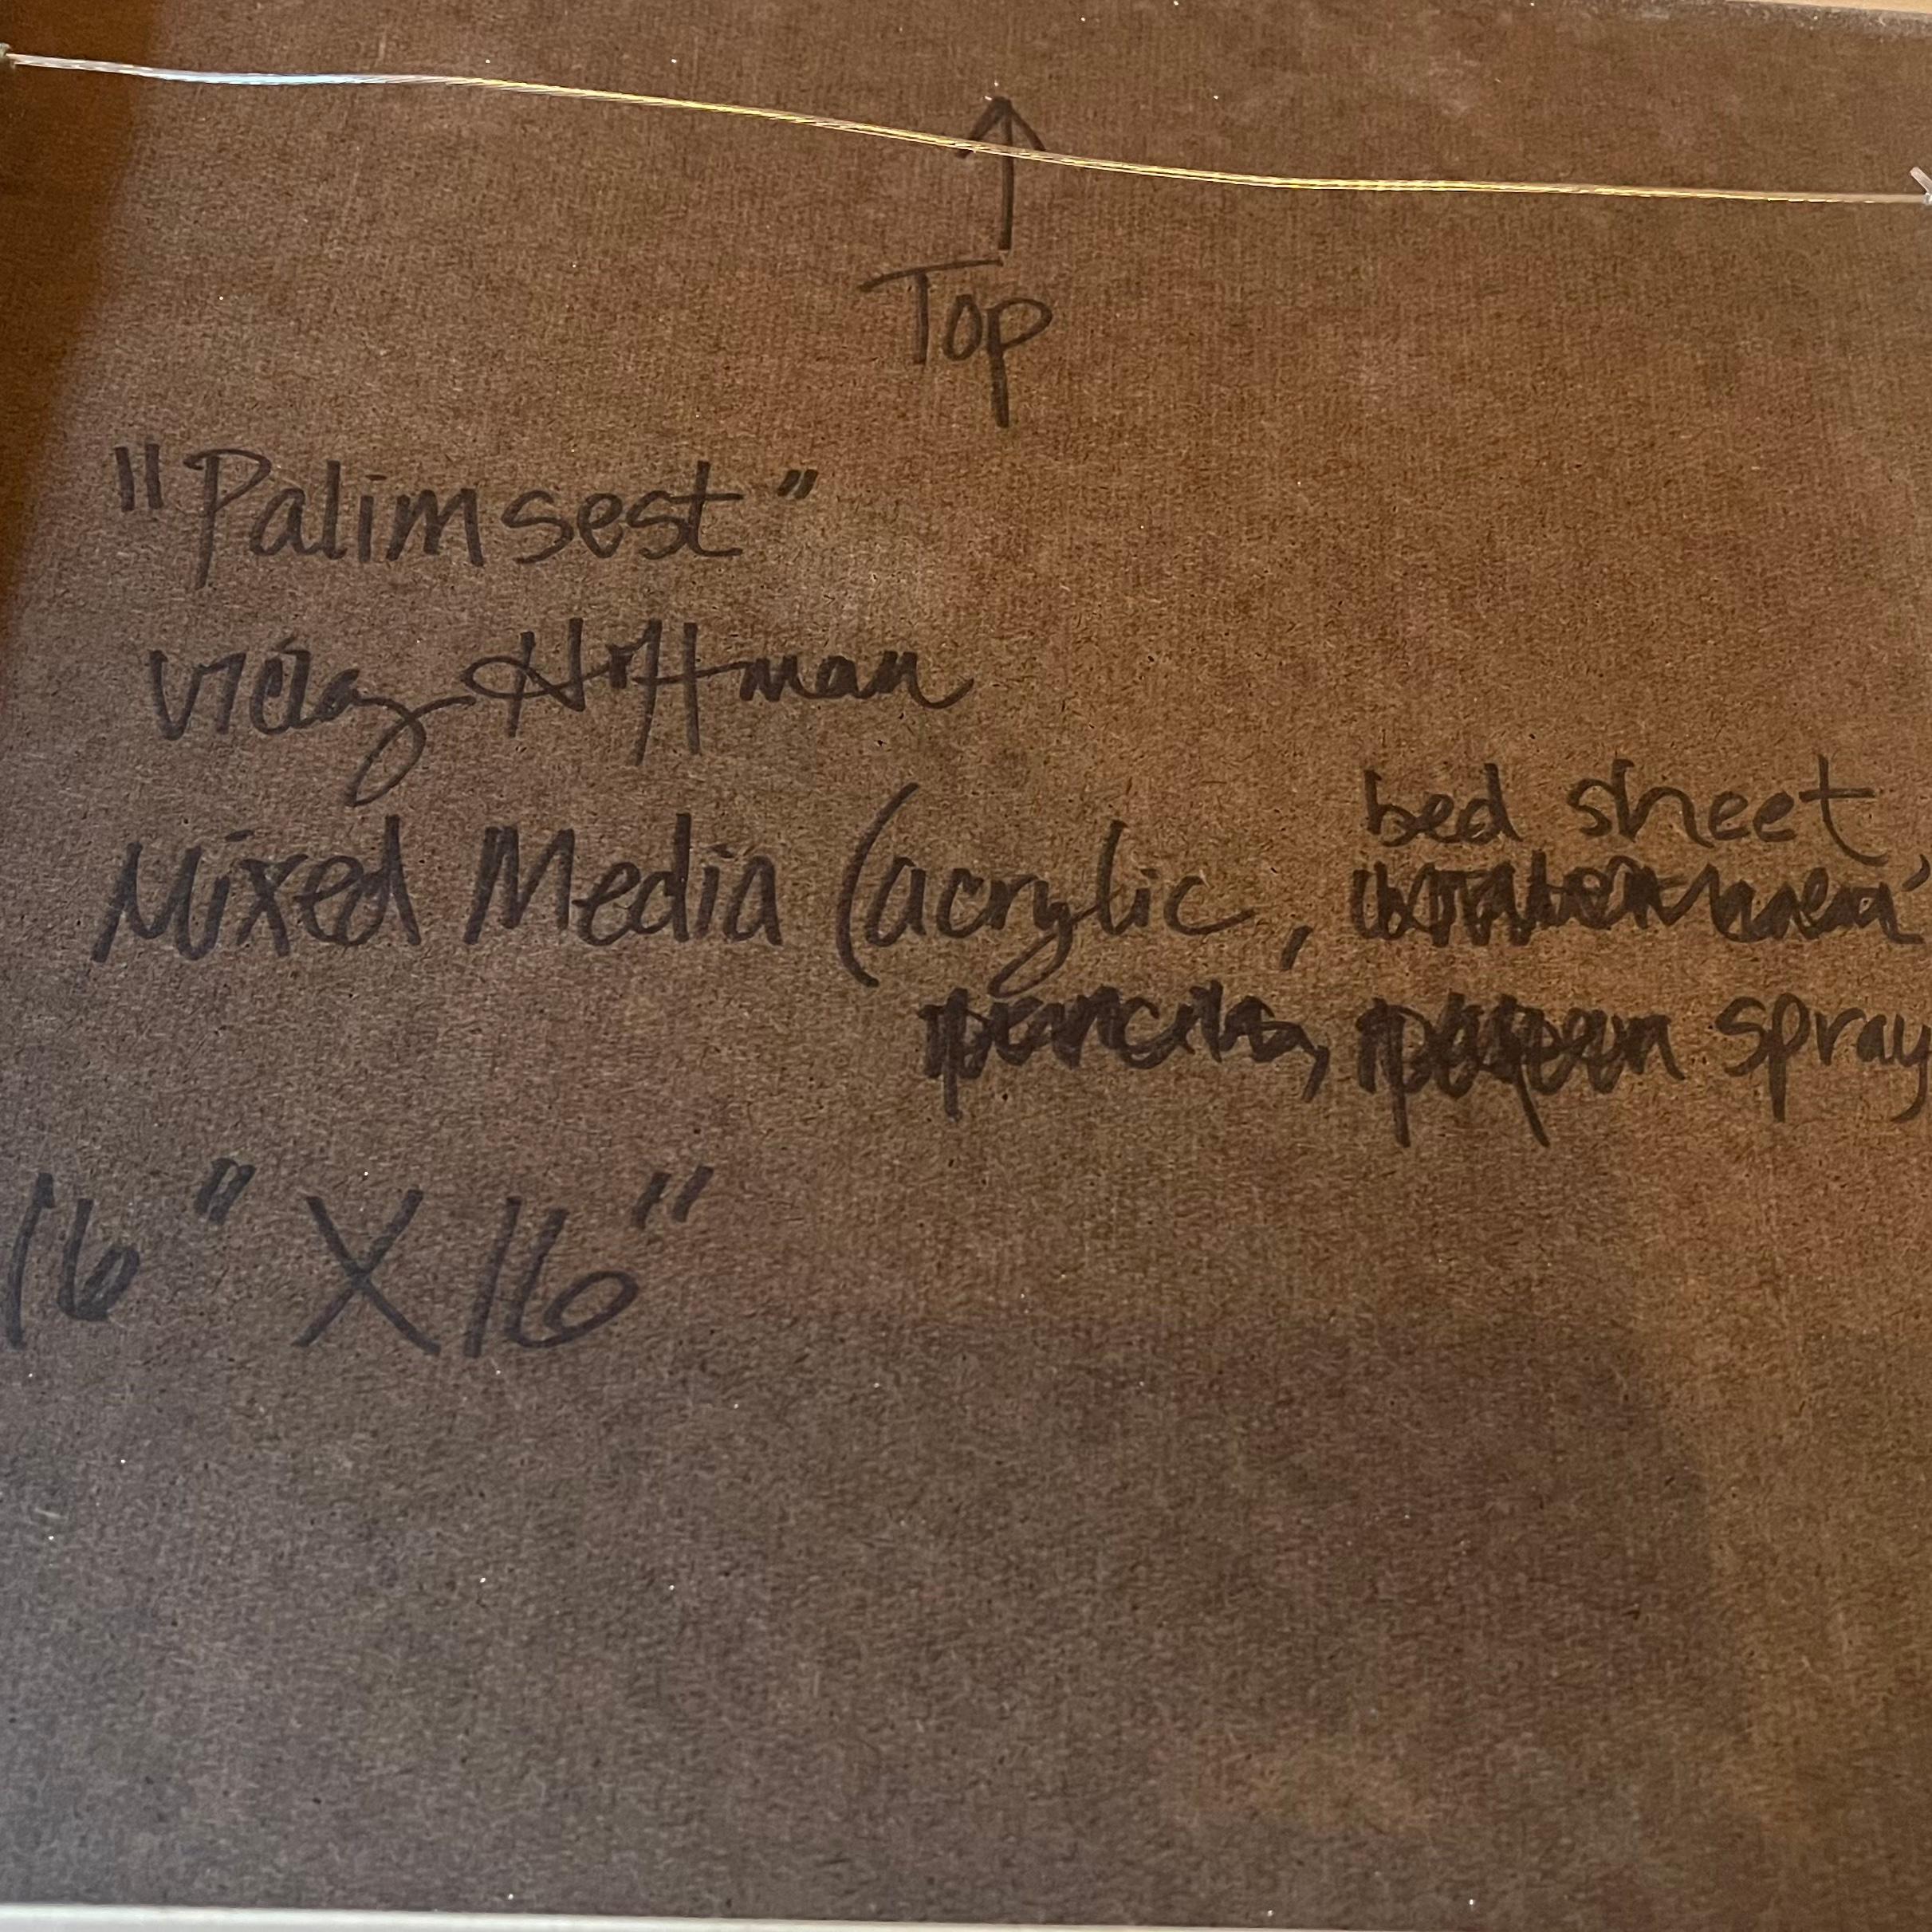 Top
"Palimsest"
Vicky Hoffman
bed sheet
Mixed Media (acrylic,
pencils, spray
16" X 16"